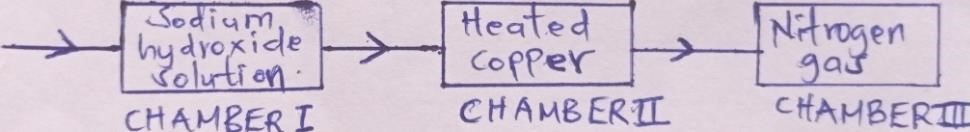 Sodium
hydroxide
solution.
CHAMBER I
Heated
copper
CHAMBER II
Nitrogen
gas
CHAMBER III